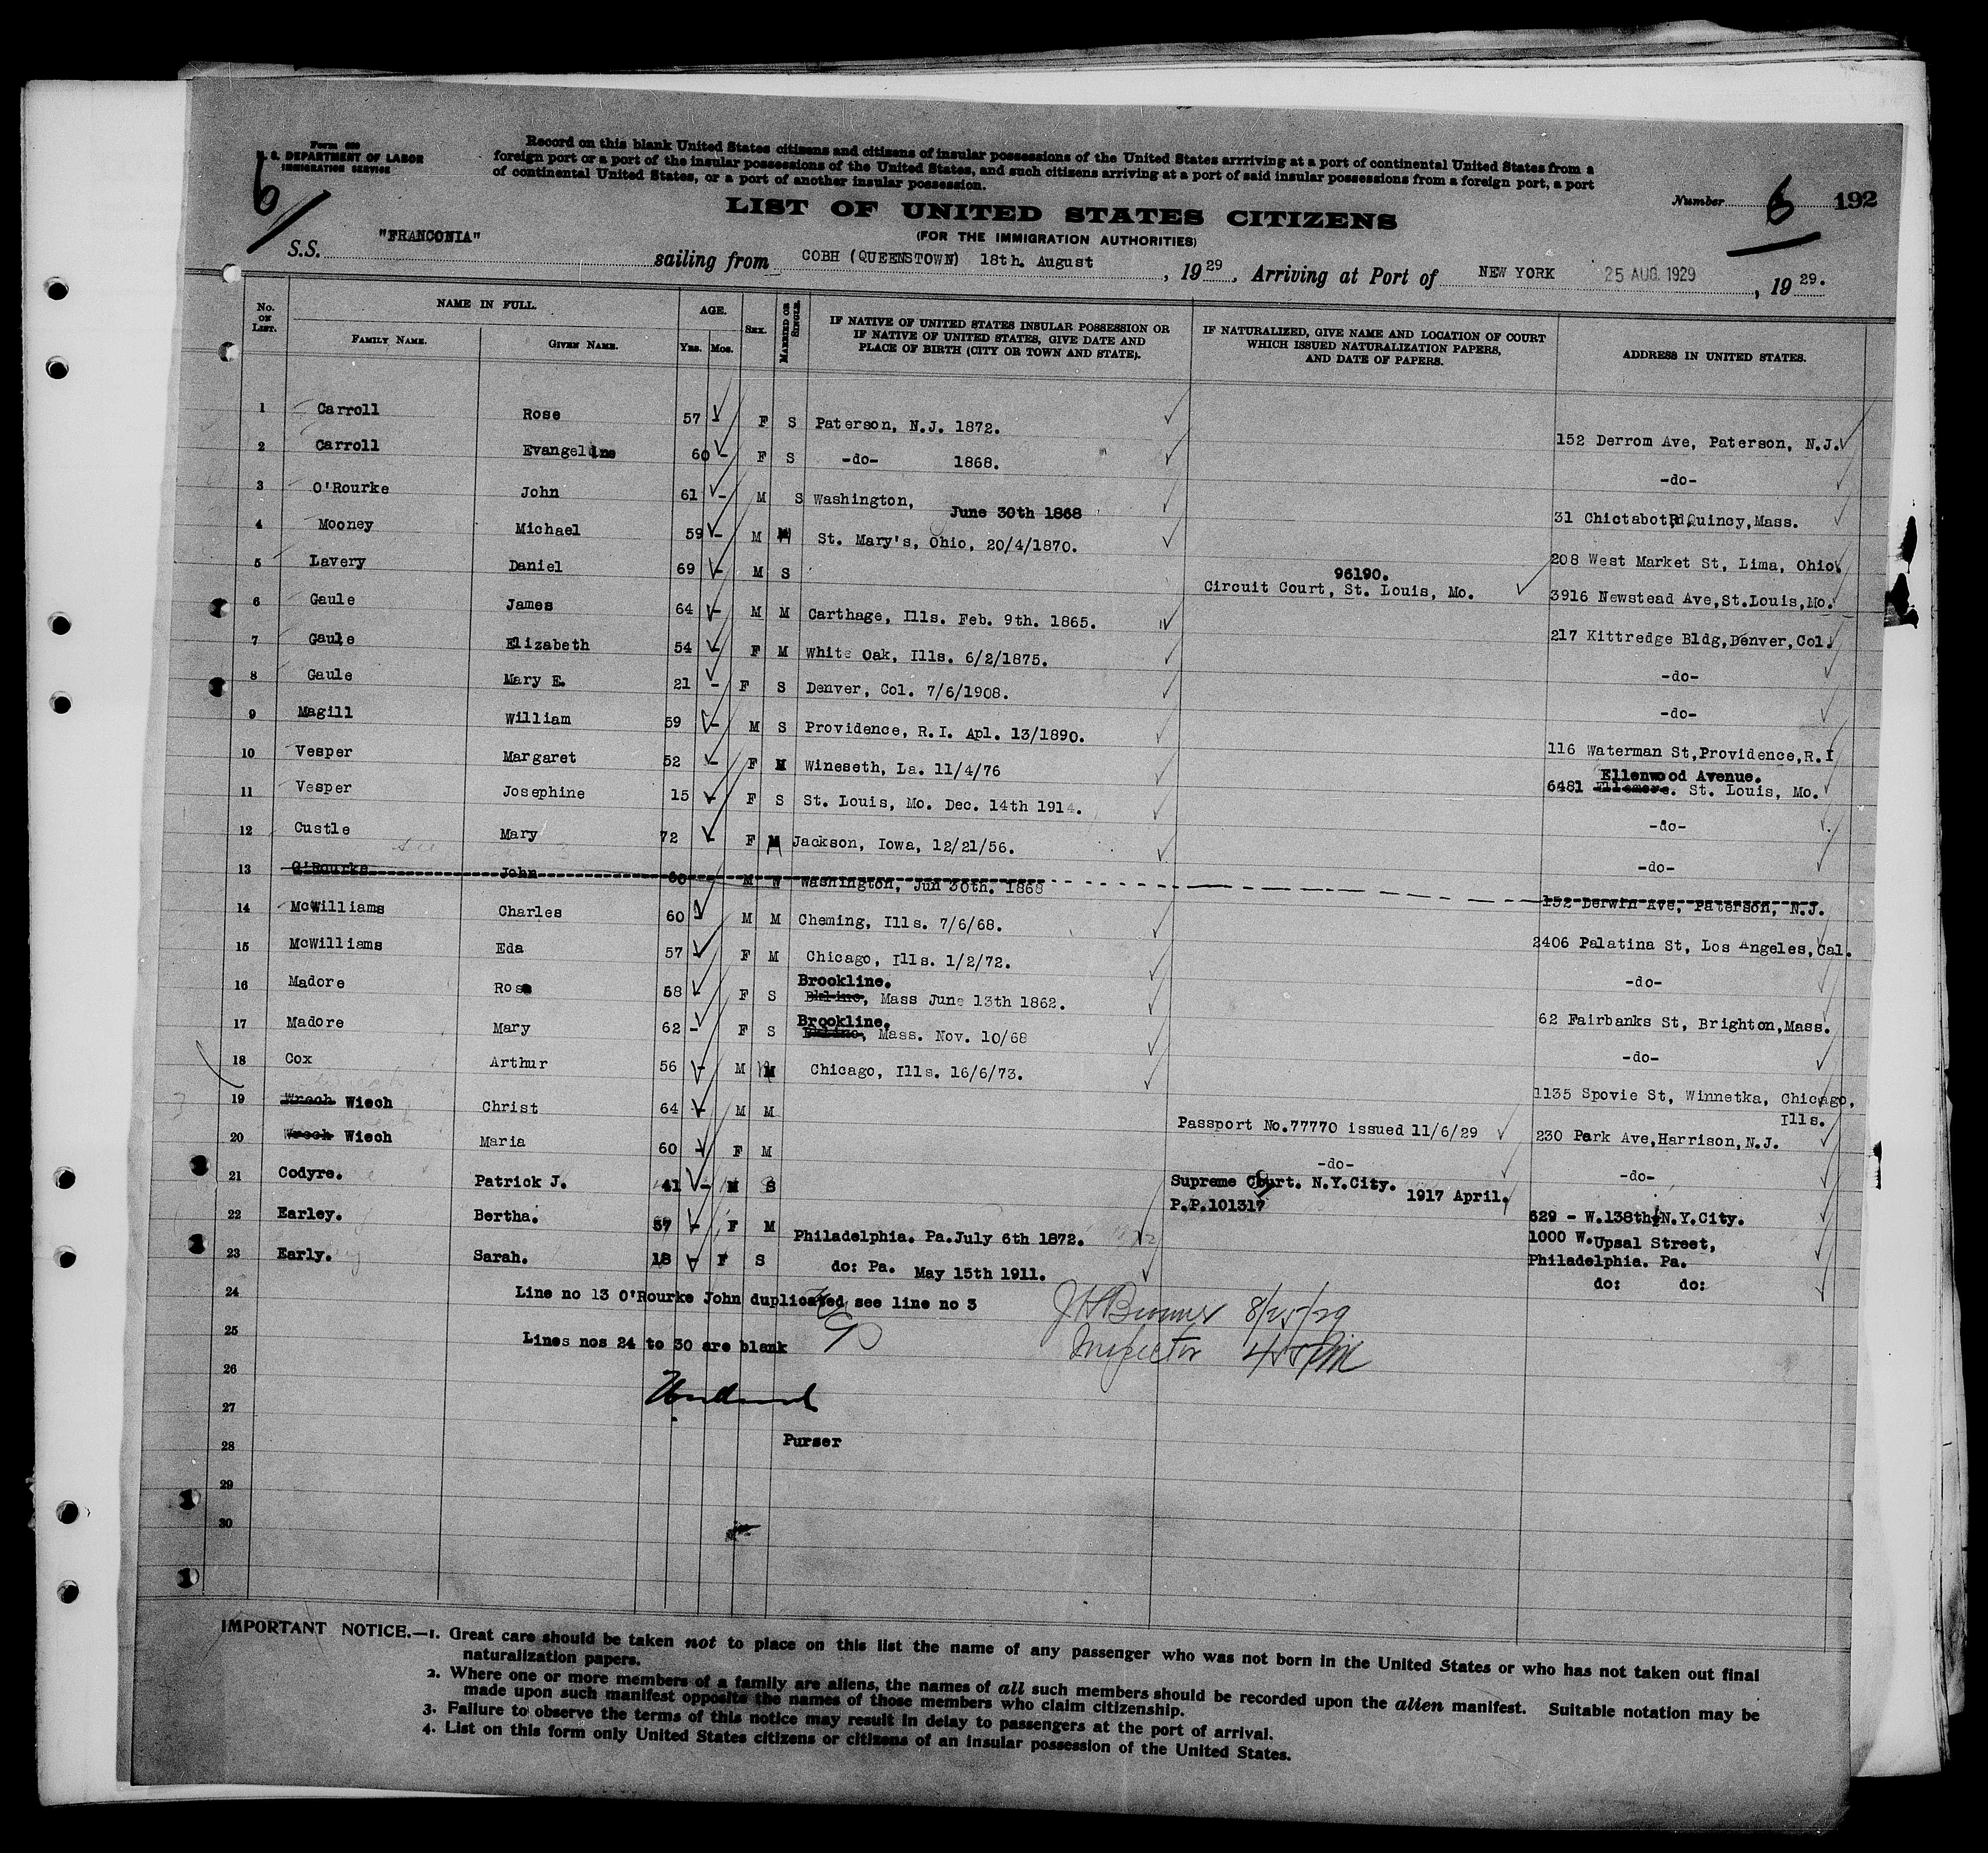 Form 630
U. S. DEPARTMENT OF LABOR
IMMIGRATION SERVICE
6
Record on this blank United States citizens and citizens of insular possessions of the United States arrriving at a port of continental United States from a
foreign port or a port of the insular possessions of the United States, and such citizens arriving at a port of said insular possessions from a foreign port, a port
of continental United States, or a port of another insular possession.
Number 6 192
LIST OF UNITED STATES CITIZENS
(FOR THE IMMIGRATION AUTHORITIES)
S.S. "FRANCONIA" sailing from COBH (QUEENSTOWN) 18th. August, 1929. Arriving at Port of NEW YORK 25 AUG 1929, 1929.
No. ON LIST. NAME IN FULL. FAMILY NAME. GIVEN NAME. AGE. Yrs. Mos. SEX. MARRIED OR SINGLE. IF NATIVE OF UNITED STATES INSULAR POSSESSION OR IF NATIVE OF UNITED STATES, GIVE DATE AND PLACE OF BIRTH (CITY OR TOWN AND STATE). IF NATURALIZED, GIVE NAME AND LOCATION OF COURT WHICH ISSUED NATURALIZATION PAPERS, AND DATE OF PAPERS. ADDRESS IN UNITED STATES.
1 Carroll Rose 57 - F S Paterson, N.J. 1872. 152 Derrom Ave, Paterson, N.J.
2 Carroll Evangeline 60 - F S -do- 1868. -do-
3 O'Rourke John 61 - M S Washington, June 30th 1868 31 Chictabot Rd, Quincy, Mass.
4 Mooney Michael 59 - M M St. Mary's, Ohio, 20/4/1870. 208 West Market St, Lima, Ohio.
5 Lavery Daniel 69 - M S 96190. Circuit Court, St. Louis, Mo. 3916 Newstead Ave, St.Louis, Mo.
6 Gaule James 64 - M M Carthage, Ills. Feb. 9th. 1865. 217 Kittredge Bldg, Denver, Col.
7 Gaule Elizabeth 54 - F M White Oak, Ills. 6/2/1875. -do-
8 Gaule Mary E. 21 - F S Denver, Col. 7/6/1908. -do-
9 Magill William 59 - M S Providence, R.I. Apl. 13/1890. 116 Waterman St, Providence, R.I
10 Vesper Margaret 52 - F M Wineseth, La. 11/4/76 6481 Ellemore. Ellenwood Avenue. St. Louis, Mo.
11 Vesper Josephine 15 - F S St. Louis, Mo. Dec. 14th 1914. -do-
12 Custle Mary 72 - F M Jackson, Iowa, 12/21/56. -do-
13 O'Rourke John 60 - M W Washington, Jun 30th. 1868 152 Derwin Ave, Paterson, N.J.
14 McWilliams Charles 60 - M M Cheming, Ills. 7/6/68. 2406 Palatina St, Los Angeles, Cal.
15 McWilliams Eda 57 - F M Chicago, Ills. 1/2/72. -do-
16 Madore Rose 68 - F S Brookline. Bkline, Mass June 13th 1862. 62 Fairbanks St, Brighton, Mass.
17 Madore Mary 62 - F S Brookline. Bkline, Mass. Nov. 10/68 -do-
18 Cox Arthur 56 - M M Chicago, Ills. 16/6/73. 1135 Spovie St, Winnetka, Chicago, Ills.
19 Wrech Wiech Christ 64 - M M Passport No.77770 issued 11/6/29 230 Park Ave, Harrison, N.J.
20 Wrech Wiech Maria 60 - F M -do- -do-
21 Codyre. Patrick J. 41 - M S Supreme Court. N.Y.City. 1917 April. P.P.101317 629 - W.138th N.Y.City.
22 Earley. Bertha. 57 - F M Philadelphia. Pa. July 6th 1872. 1000 W. Upsal Street, Philadelphia. Pa.
23 Early. Sarah. 18 - F S do: Pa. May 15th 1911. do: do:
24 Line no 13 O'Rourke John duplicated see line no 3
Inspector 8/25/29
25 Lines nos 24 to 30 are blank
26
27
28 Purser
29
30
IMPORTANT NOTICE.—1. Great care should be taken not to place on this list the name of any passenger who was not born in the United States or who has not taken out final
naturalization papers.
2. Where one or more members of a family are aliens, the names of all such members should be recorded upon the alien manifest. Suitable notation may be
made upon such manifest opposite the names of those members who claim citizenship.
3. Failure to observe the terms of this notice may result in delay to passengers at the port of arrival.
4. List on this form only United States citizens or citizens of an insular possession of the United States.